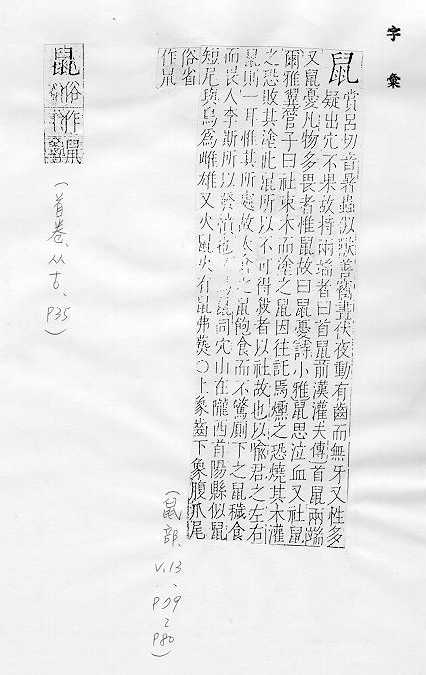 字彙
鼠
賞呂切音暑蟲似獸善竊晝伏夜動有齒而無牙又性多
疑出穴不果故持兩端者曰首鼠前漢灌夫傳首鼠兩端
又鼠憂凡物多畏者惟鼠故曰鼠憂詩小雅鼠思泣血又社鼠
爾雅翼管子曰社束木而塗之鼠因往託焉燻之恐燒其木灌
之恐敗其塗此鼠所以不可得殺者以社故也以喻君之左右
鼠則一耳惟其所處故太倉之鼠飽食而不驚廁下之鼠穢食
而畏人李斯所以發憤也鼠同穴山在隴西首陽縣似鼠
短尾與鳥為雌雄又火鼠火有鼠弗爇○上象齒下象腹爪尾
俗省
作鼡
(鼠部、V.13、P79~P80)
鼠
俗作鼡
(首卷、从古、P35)